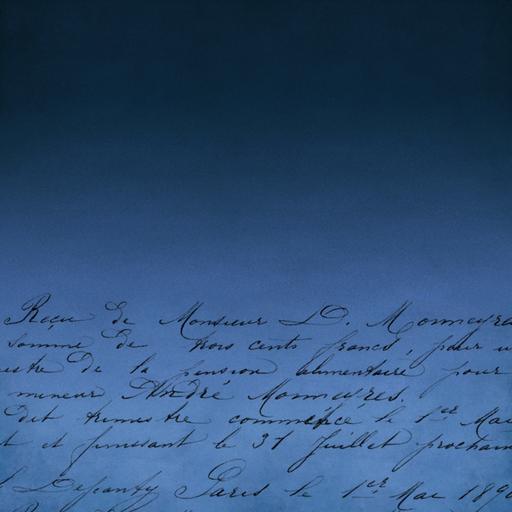 Reçu de Monsieur D. Monneyre
somme de trois cents francs, pour u
stre de la pension alimentaire pour
mineur André Monneyres.
Dit trimestre commencé le 1er Mai
t et finissant le 31 Juillet prochain
Paris le 1er Mai 189